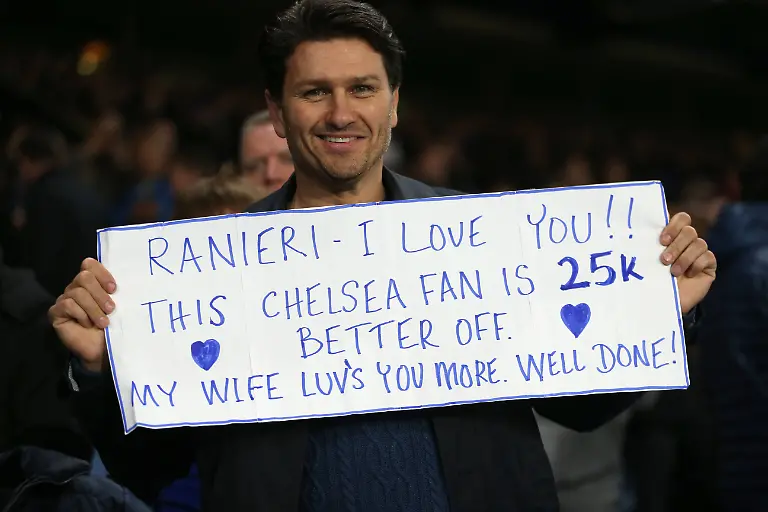 RANIERI - I LOVE YOU!!
THIS CHELSEA FAN IS 25K
BETTER OFF.
MY WIFE LUV'S YOU MORE. WELL DONE!